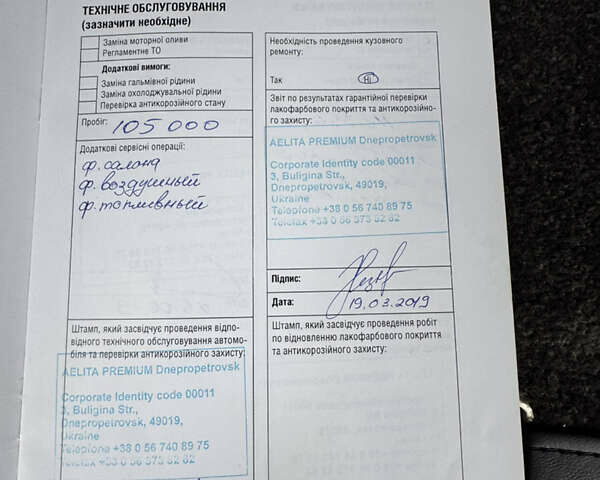 ТЕХНІЧНЕ ОБСЛУГОВУВАННЯ
(зазначити необхідне)
Заміна моторної оливи
Регламентне ТО
Додаткові вимоги:
Заміна гальмівної рідини
Заміна охолоджувальної рідини
Перевірка антикорозійного стану
Пробіг: 105 000
Додаткові сервісні операції:
ф. салона
ф. воздушный
ф. топливный
Штамп, який засвідчує проведення відпо-
відного технічного обслуговування автомо-
біля та перевірки антикорозійного захисту:
AELITA PREMIUM Dnepropetrovsk
Corporate Identity code 00011
3, Buligina Str.,
Dnepropetrovsk, 49019,
Ukraine
Telefone +38 0 56 740 89 75
Telefax +38 0 56 373 82 82
Необхідність проведення кузовного
ремонту:
Так Ні
Звіт по результатах гарантійної перевірки
лакофарбового покриття та антикорозійно-
го захисту:
AELITA PREMIUM Dnepropetrovsk
Corporate Identity code 00011
3, Buligina Str.,
Dnepropetrovsk, 49019,
Ukraine
Telefone +38 0 56 740 89 75
Telefax +38 0 56 373 82 82
Підпис:
Дата: 19.03.2019
Штамп, який засвідчує проведення робіт
по відновленню лакофарбового покриття
та антикорозійного захисту: